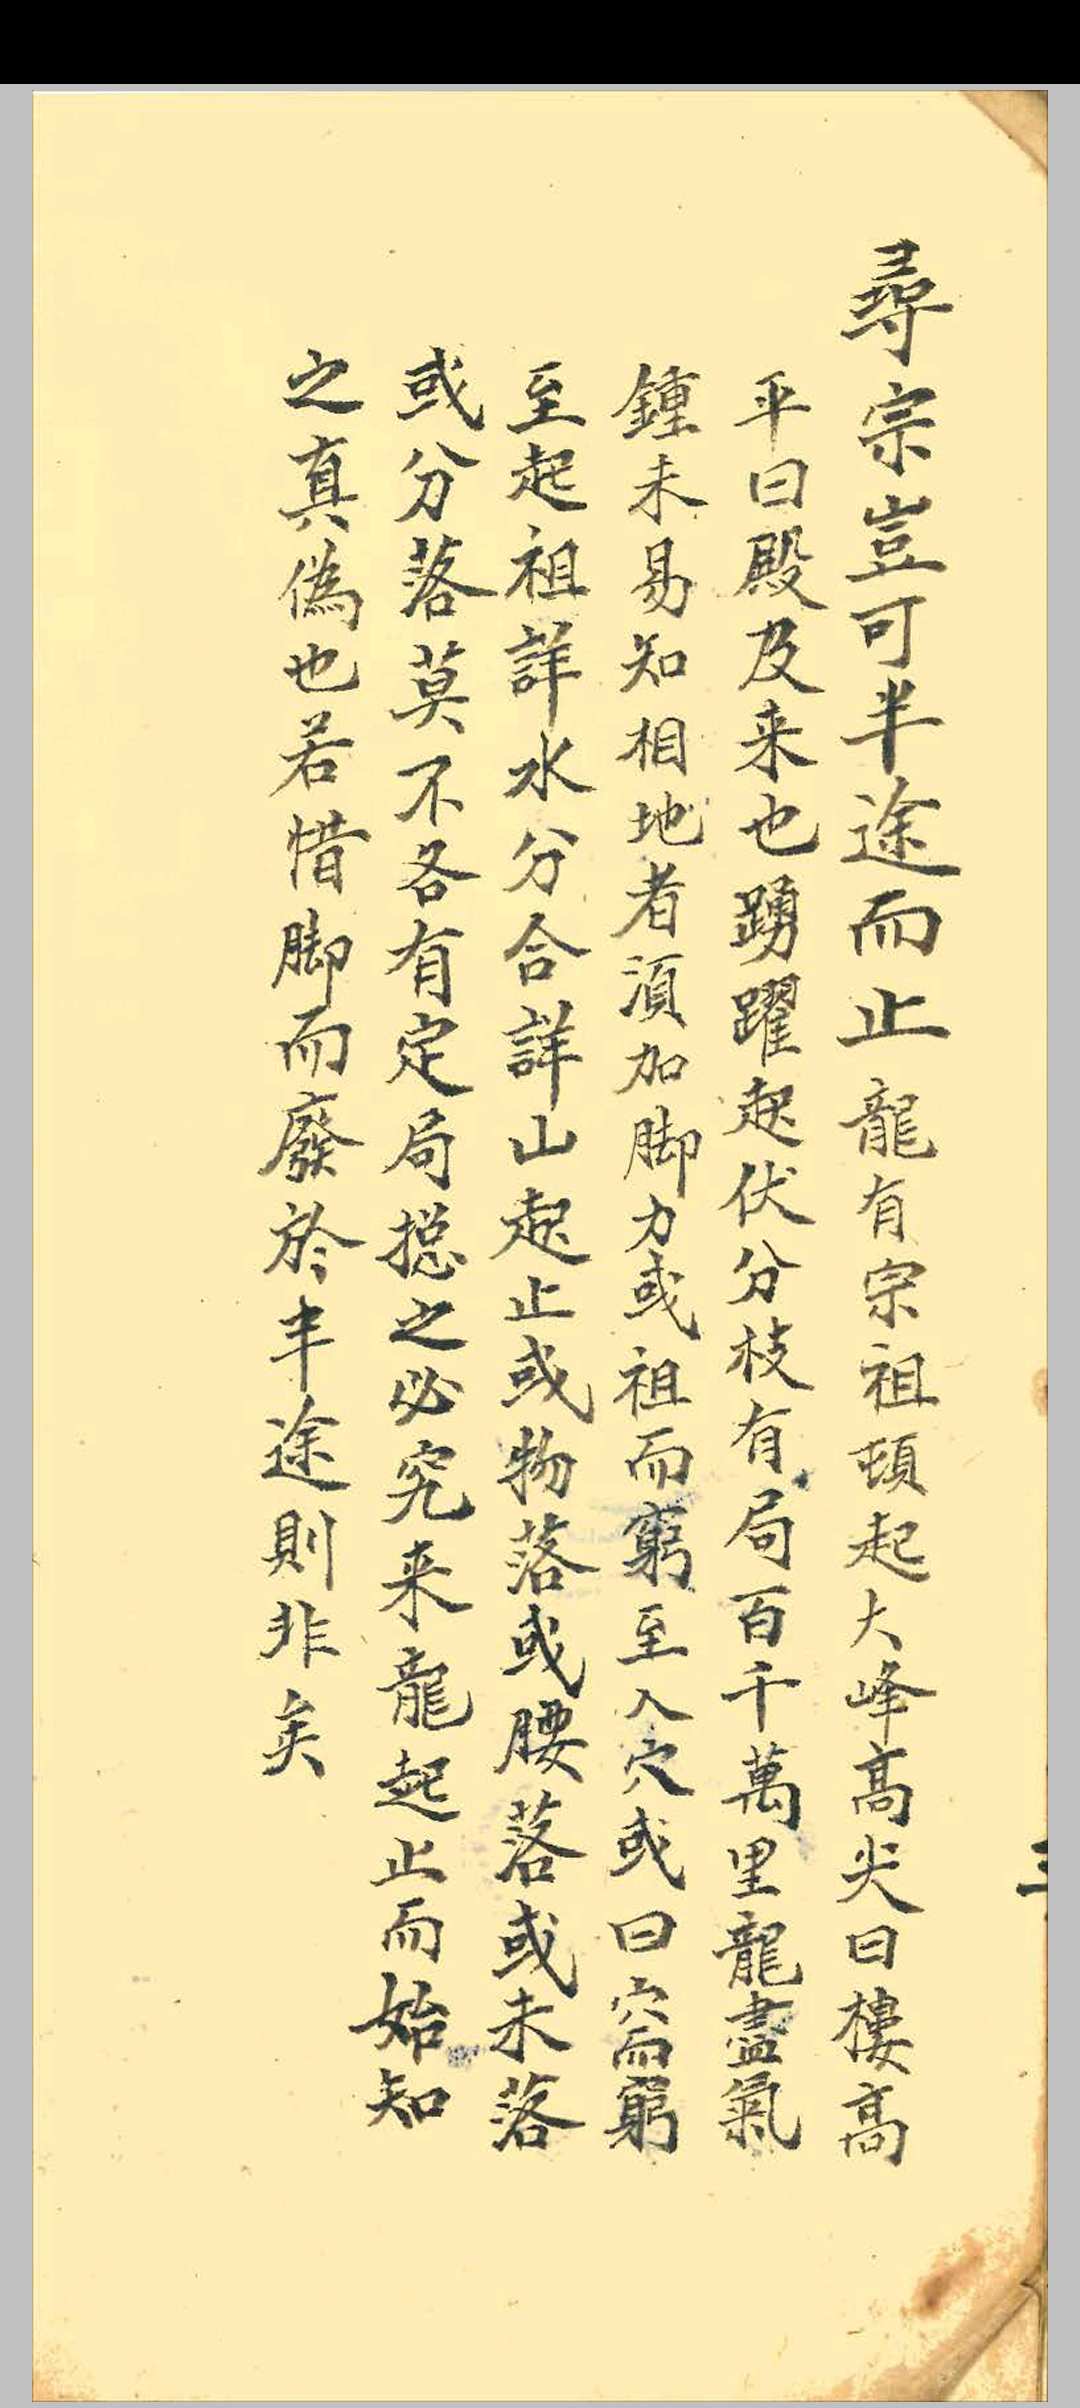 尋宗豈可半途而止龍有宗祖頓起大峰高尖曰樓高
平曰殿及来也踴躍起伏分枝有局百千萬里龍盡氣
鍾未易知相地者須加脚力或祖而窮至入穴或曰穴而窮
至起祖詳水分合詳山起止或物落或腰落或未落
或分落莫不各有定局捴之必究来龍起止而始知
之真偽也若惜脚而廢於半途則非矣